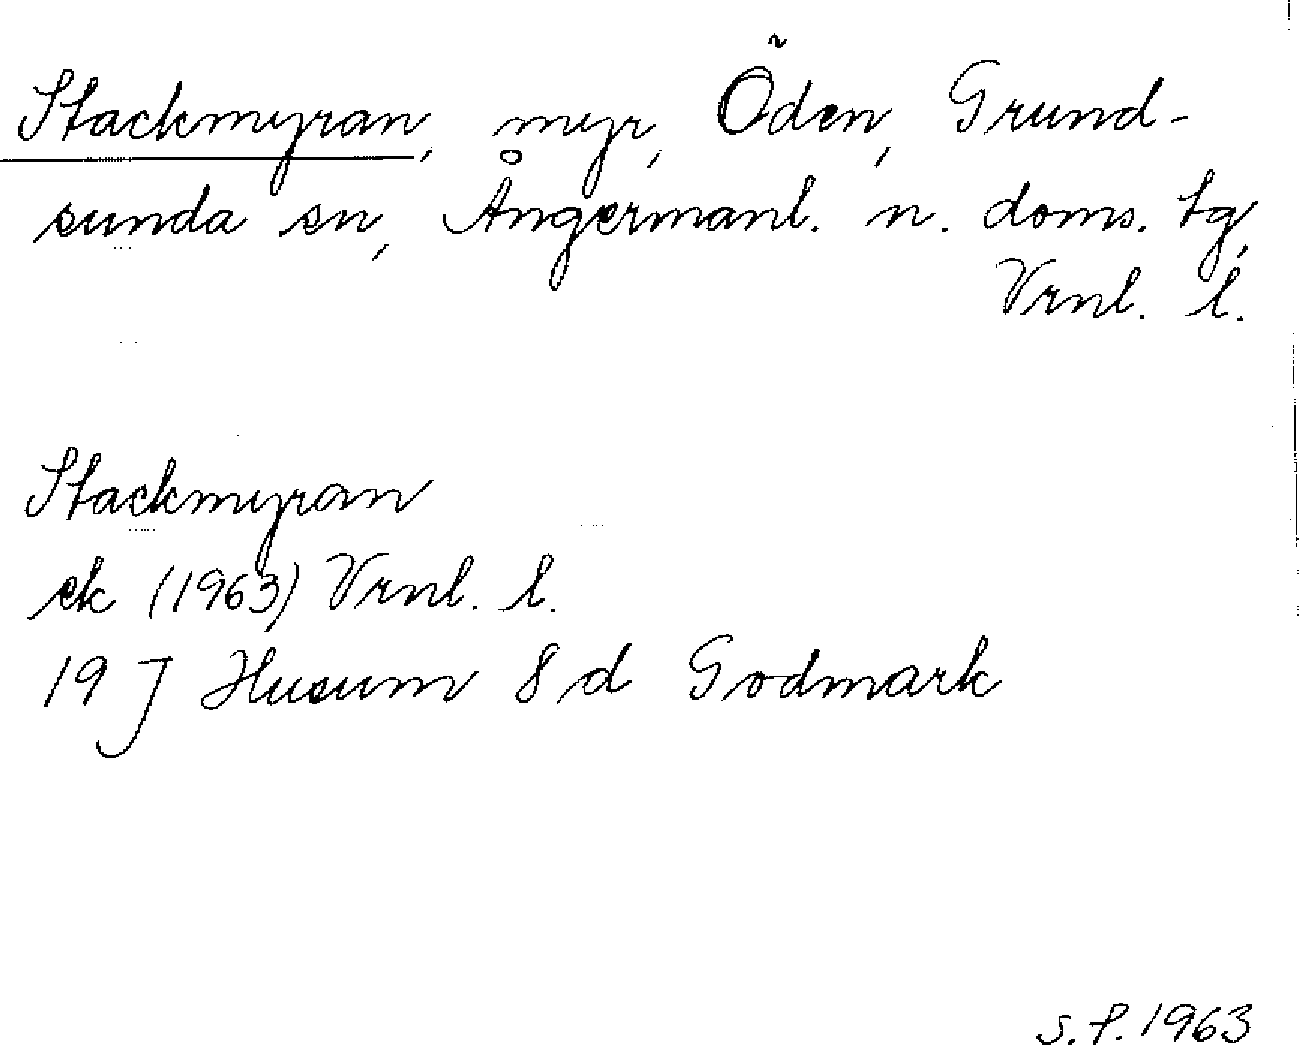 Stackmyran, myr, Öden, Grund-
sunda sn, Ångermanl. n. doms. tg,
Vrnl. l.
Stackmyran
ek (1963) Vrnl. l.
19 J Husum 8 d Godmark
S.f. 1963